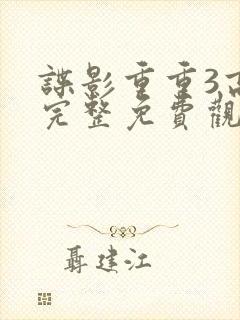 諜影重重3,高
完整免費觀
聶建江